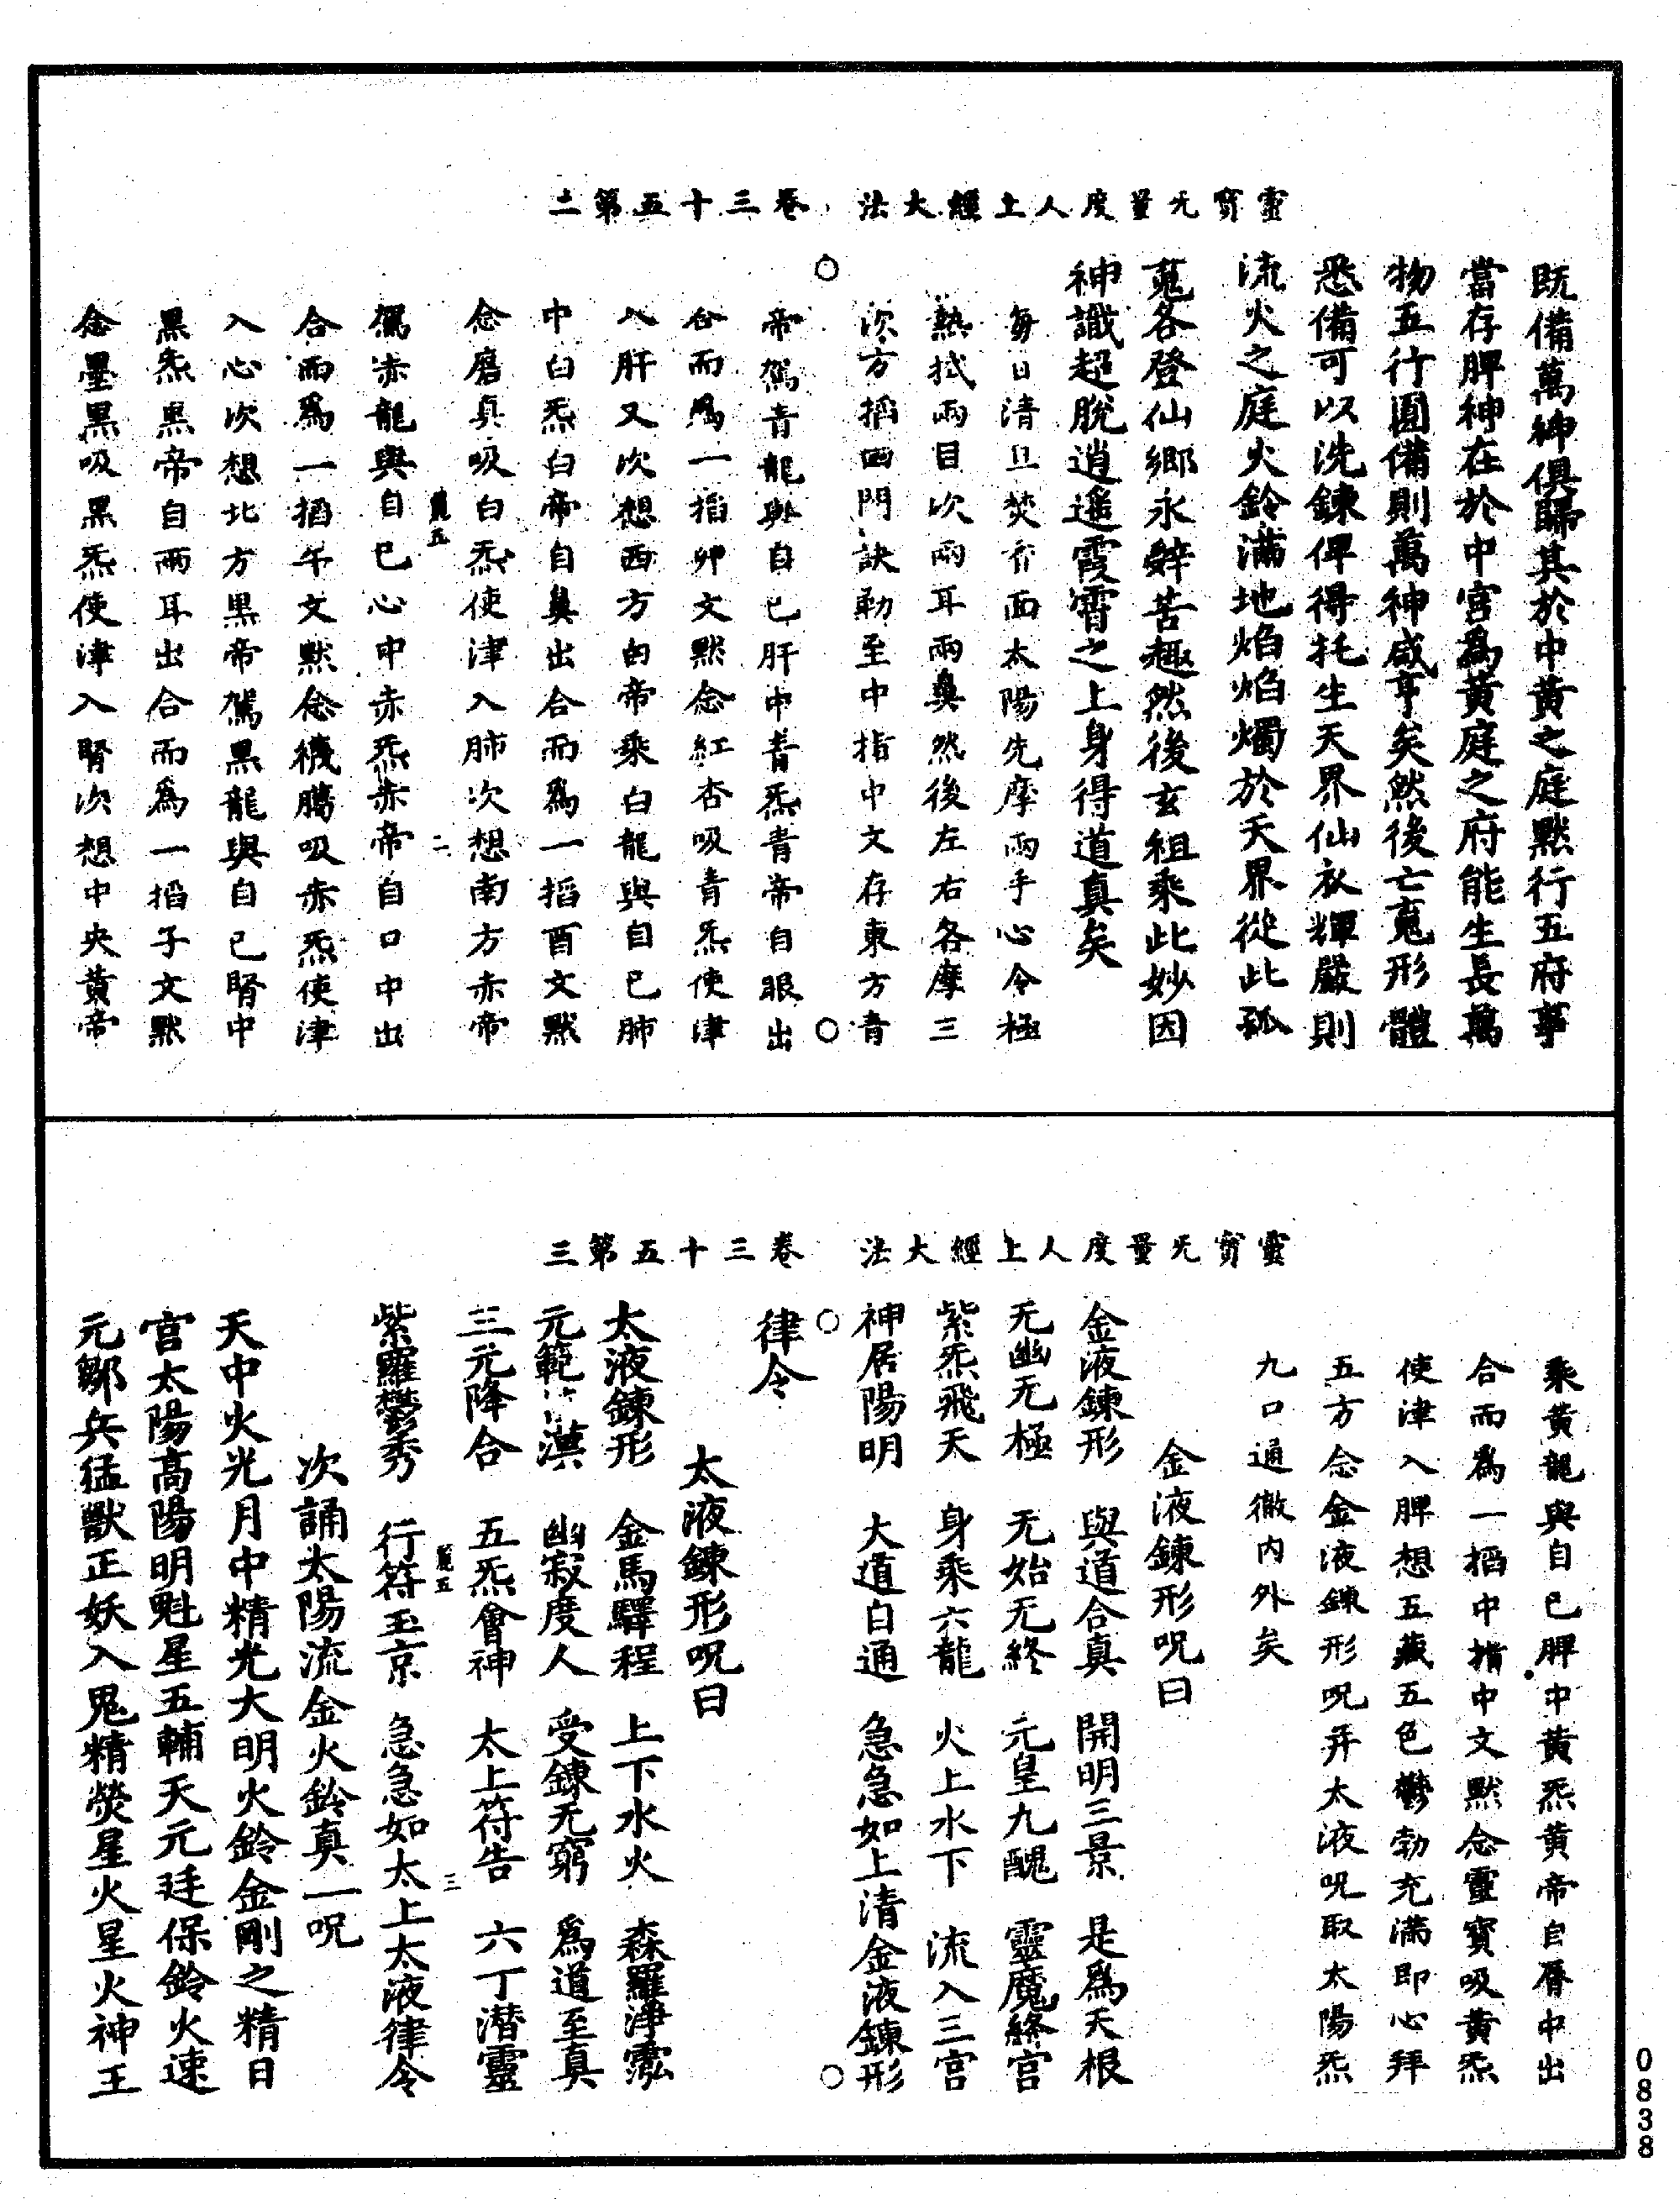 靈寶无量度人上經大法 卷三十五第二
既備萬神俱歸其於中黃之庭默行五府事
當存脾神在於中宮為黃庭之府能生長萬
物五行圓備則萬神咸亨矣然後亡䰟形體
悉備可以洗鍊俾得托生天界仙衣輝嚴則
流火之庭火鈴滿地焰焰燭於天界從此孤
䰟各登仙鄉永辭苦趣然後玄祖乘此妙因
神識超脫逍遙霞霄之上身得道真矣
每日清旦焚香面太陽先摩兩手心令極
熱拭兩目次兩耳兩鼻然後左右各摩三
次方搯四門訣勒至中指中文存東方青
帝駕青龍與自己肝中青炁青帝自眼出
合而為一搯卯文默念紅杏吸青炁使津
入肝又次想西方白帝乘白龍與自己肺
中白炁白帝自鼻出合而為一搯酉文默
念磨真吸白炁使津入肺次想南方赤帝
駕赤龍與自己心中赤炁赤帝自口中出
合而為一搯午文默念機騰吸赤炁使津
入心次想北方黑帝駕黑龍與自己腎中
黑炁黑帝自兩耳出合而為一搯子文默
念墨黑吸黑炁使津入腎次想中央黃帝
靈寶无量度人上經大法 卷三十五第三
乘黃龍與自己脾中黃炁黃帝自脣中出
合而為一搯中指中文默念靈寶吸黃炁
使津入脾想五藏五色鬱勃充滿即心拜
五方念金液鍊形呪并太液呪取太陽炁
九口通徹內外矣
金液鍊形呪曰
金液鍊形 與道合真 開明三景 是為天根
无幽无極 无始无終 元皇九醜 靈魔絳宮
紫炁飛天 身乘六龍 火上水下 流入三宮
神居陽明 大道自通 急急如上清金液鍊形
律令
太液鍊形呪曰
太液鍊形 金馬驛程 上下水火 森羅淨霐
元範漠 幽寂度人 受鍊无窮 為道至真
三元降合 五炁會神 太上符告 六丁潛靈
紫羅鬱秀 行符玉京 急急如太上太液律令
次誦太陽流金火鈴真一呪
天中火光月中精光大明火鈴金剛之精日
宮太陽高陽明魁星五輔天元廷保鈴火速
元鄒兵猛獸正妖入鬼精熒星火星火神王
0838